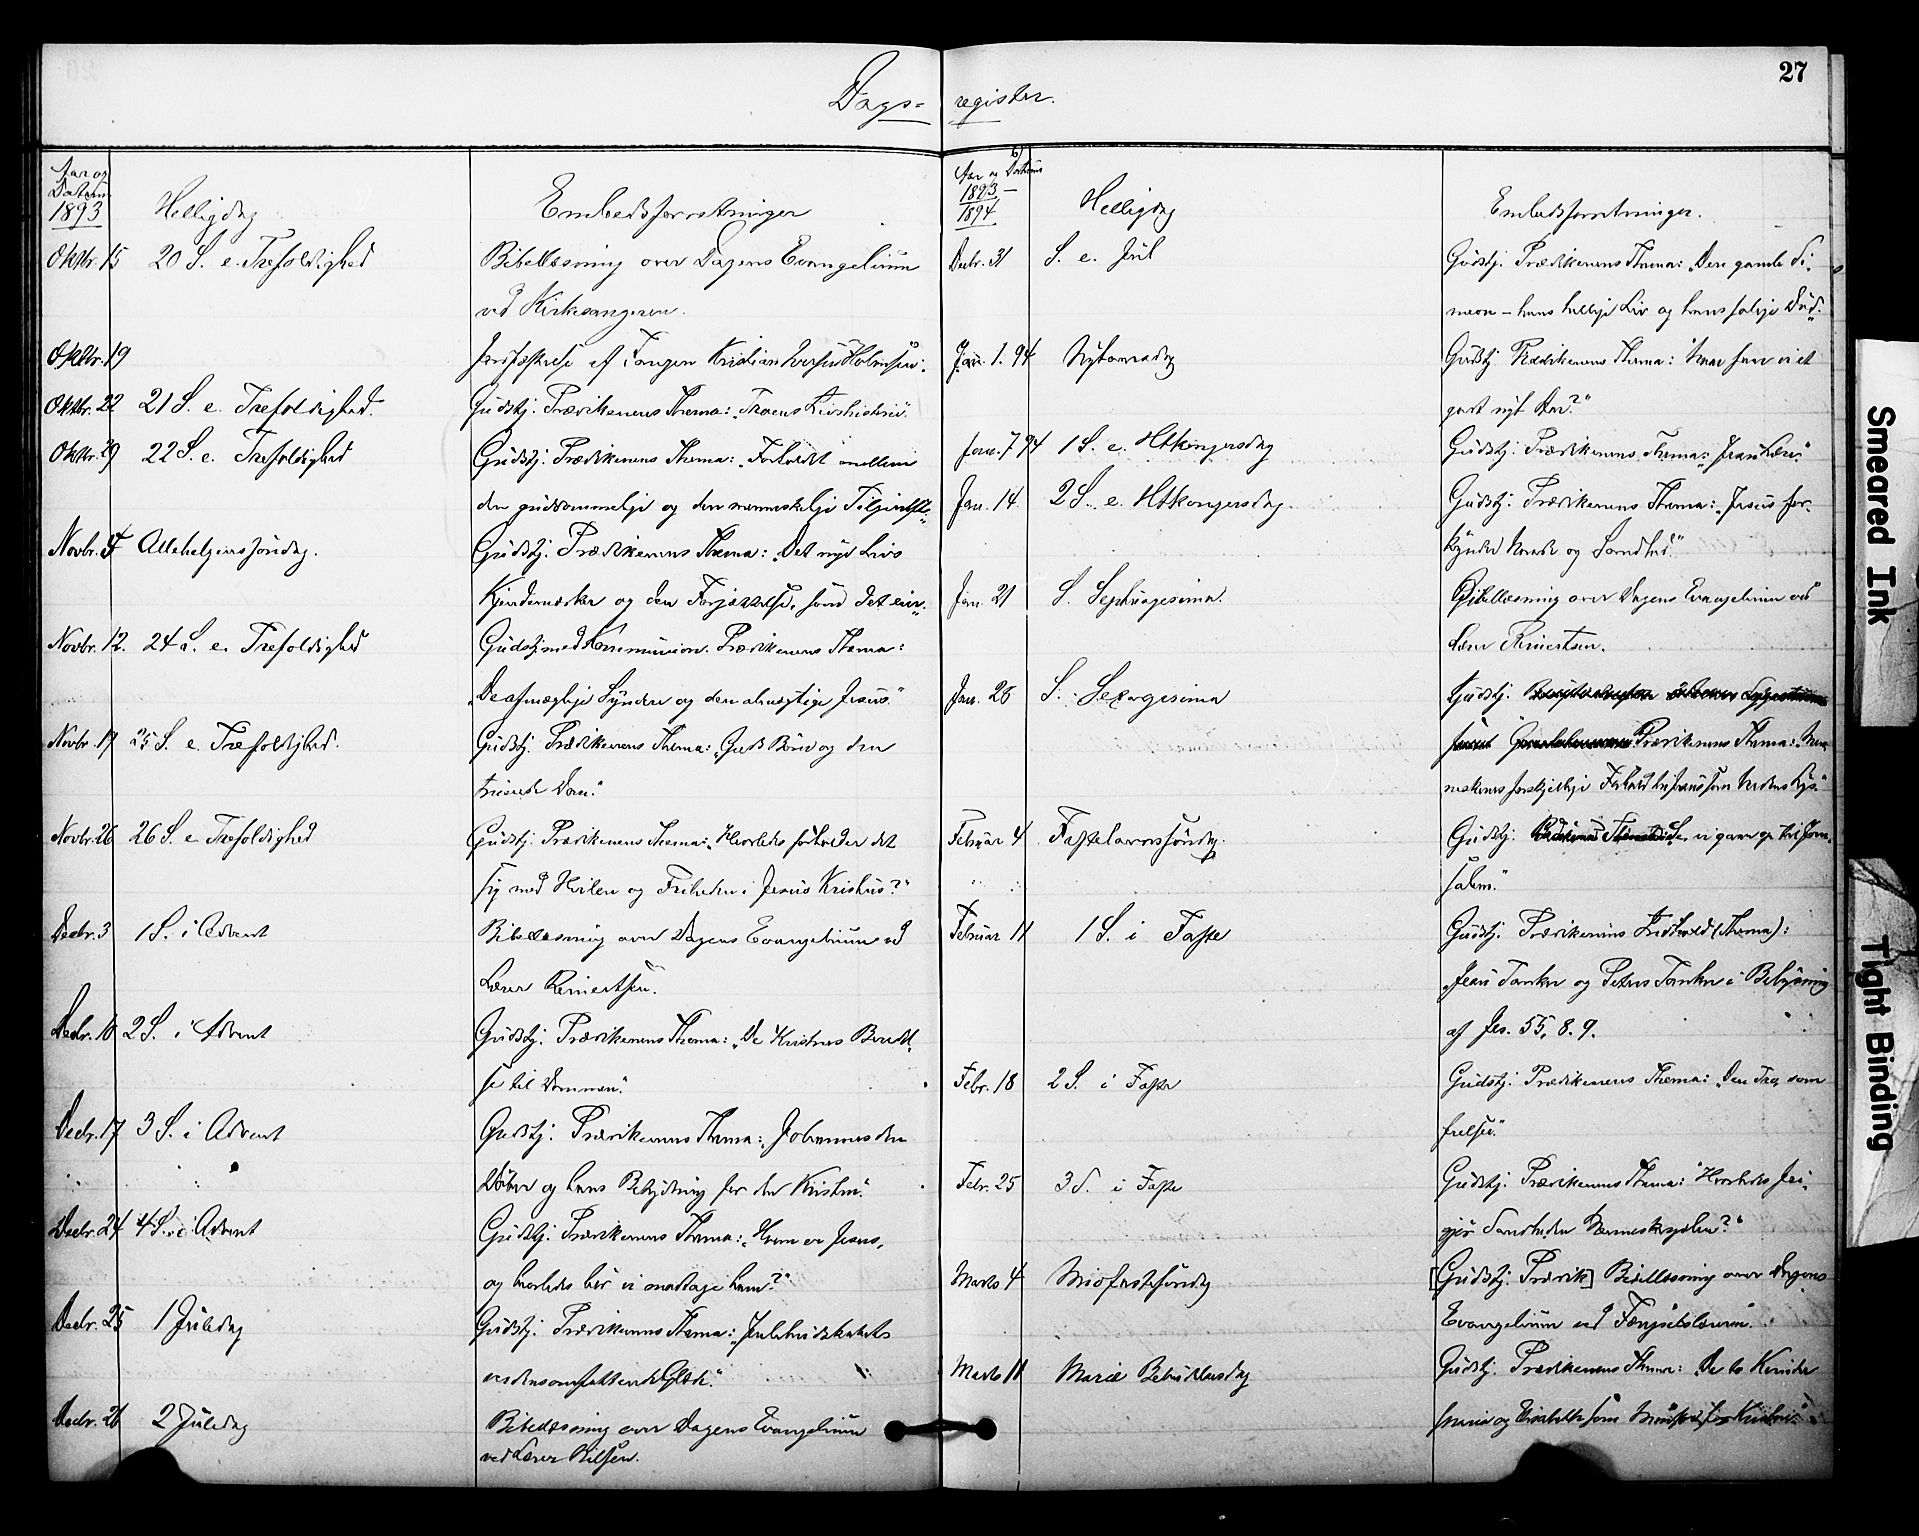 Dags-
Aar og Datum 1893
Helligdag
Embedsforretninger
Oktbr. 15 20 S. e. Trefoldighed Bibellæsning over Dagens Evangelium
ved Kirkesangeren.
Oktbr. 19 af Fangen Kristian
Oktbr. 22 21 S. e. Trefoldighed. Gudstj. Prædikenens Thema: „Troens Livshistorie".
Oktbr. 29 22 S. e. Trefoldighed Gudstj. Prædikenens Thema: „Forholdet mellem
den guddommelige og den menneskelige Tilgivelse."
Novbr. 5 Allehelgenssøndag. Gudstj. Prædikenens Thema: „Det nye Livs
Kjendemærker og den Forjættelse, som det eier."
Novbr. 12. 24 S. e. Trefoldighed Gudstj. med Kommunion. Prædikenens Thema:
„De afmægtige Syndere og den almægtige Jesus."
Novbr. 19 25 S. e. Trefoldighed. Gudstj. Prædikenens Thema: „Guds Børn og den
Dom."
Novbr. 26 26 S. e. Trefoldighed Gudstj. Prædikenens Thema: „Hvorledes forholder det
sig med Hvilen og Friheden i Jesus Kristus?"
Decbr. 3 1 S. i Advent Bibellæsning over Dagens Evangelium ved
Lærer Reinertsen.
Decbr. 10 2 S. i Advent Gudstj. Prædikenens Thema: „De Kristnes Beredel-
se til Dommen".
Decbr. 17 3 S. i Advent Gudstj. Prædikenens Thema: „Johannes den
Døber og hans Betydning for den Kristne".
Decbr. 24 4 S. i Advent Gudstj. Prædikenens Thema: „Hvem er Jesus,
og hvorledes bør vi modtage ham?"
Decbr. 25 1 Juledag Gudstj. Prædikenens Thema: „Julebudskabets
verdensomfattende Glæde".
Decbr. 26 2 Juledag Bibellæsning over Dagens Evangelium
ved Lærer Nilsen.
register.
27
Aar og Datum
1893 –
1894
Helligdag
Embedsforretninger.
Decbr. 31 S. e. Jul Gudstj. Prædikenens Thema: „Den gamle Si-
meon – hans hellige Liv og hans salige Død."
Jan. 1. 94 Nytaarsdag Gudstj. Prædikenens Thema: „Hvad faar vi et
godt nyt Aar?"
Jan. 7 94 1 S. e. Htkongersdag Gudstj. Prædikenens Thema: „Jesu Lære"
Jan. 14 2 S. e. Htkongersdag. Gudstj. Prædikenens Thema: „Jesus for-
kynder Naade og Sandhed."
Jan. 21 S. Septuagesima. Bibellæsning over Dagens Evangelium ved
Lærer Reinertsen.
Jan. 28 S. Sexagesima Gudstj.
Prædikenens Thema: „Men-
neskenes forskjellige Forhold til Jesus som Verdens Lys."
Februar 4 Fastelavnssøndag. Gudstj. „Se, vi gaar op til Jeru-
salem."
Februar 11 1 S. i Faste Gudstj. Prædikenens Indhold (Thema):
„Jesu Tanker og Petrus Tanker i Belysning
af Jes. 55, 8. 9.
Febr. 18 2 S. i Faste Gudstj. Prædikenens Thema: „Den Tro, som
frelser."
Febr. 25 3 S. i Faste Gudstj. Prædikenens Thema: „Hvorledes fri-
gjør Sandheden Menneskesjælen?"
Marts 4 Midfastesøndag [Gudstj. Prædik] Bibellæsning over Dagens
Evangelium ved Fængselslæreren.
Marts 11 Mariæ Bebudelsesdag Gudstj. Prædikenens Thema: De to Kvinder
Maria og Elisabeth som Mønstre for Kristne."
Smeared Ink
Tight Binding